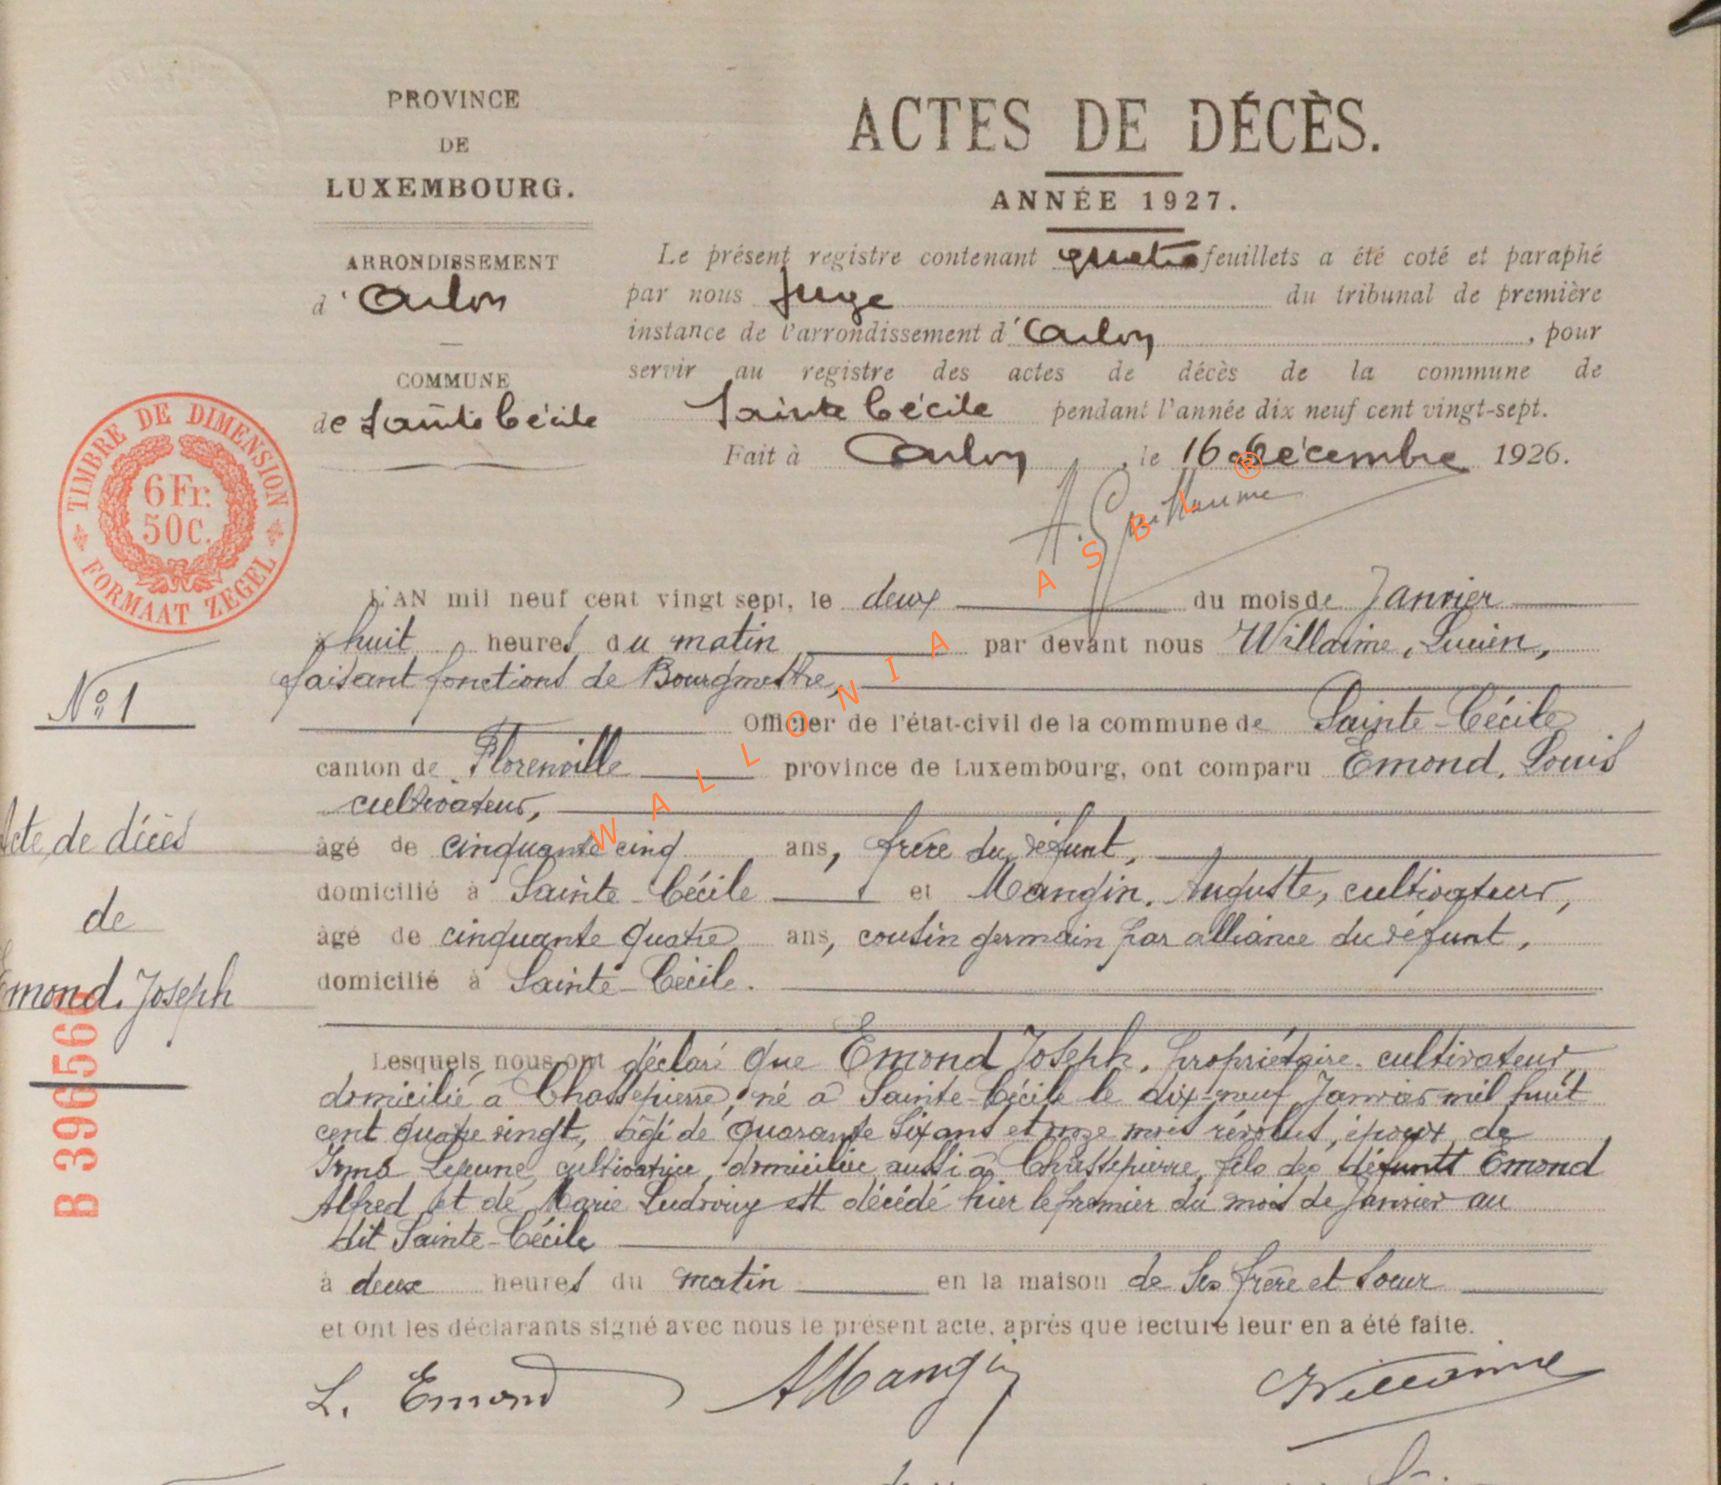 PROVINCE
DE
LUXEMBOURG.
ARRONDISSEMENT
d' Arlon
COMMUNE
de Sainte Cécile
ACTES DE DÉCÈS.
ANNÉE 1927.
Le présent registre contenant quatre feuillets a été coté et paraphé
par nous Juge du tribunal de première
instance de l'arrondissement d' Arlon, pour
servir au registre des actes de décès de la commune de
Sainte Cécile pendant l'année dix neuf cent vingt-sept.
Fait à Arlon, le 16 décembre 1926.
A. Guillaume
TIMBRE DE DIMENSION
6 Fr.
50 C.
FORMAAT ZEGEL
N° 1
Acte de décès
de
Emond, Joseph
B 39656
L'AN mil neuf cent vingt sept, le deux du mois de Janvier
à huit heures du matin par devant nous Willaime, Lucien,
faisant fonctions de Bourgmestre,
Officier de l'état-civil de la commune de Sainte-Cécile
canton de Florenville province de Luxembourg, ont comparu Emond, Louis
cultivateur,
âgé de cinquante cinq ans, frère du défunt,
domicilié à Sainte-Cécile et Mangin, Auguste, cultivateur,
âgé de cinquante quatre ans, cousin germain par alliance du défunt,
domicilié à Sainte-Cécile.
Lesquels nous ont déclaré que Emond Joseph, propriétaire-cultivateur,
domicilié à Chassepierre, né à Sainte-Cécile le dix-neuf Janvier mil huit
cent quatre vingt, âgé de quarante six ans et onze mois révolus, époux de
Irma Lejeune, cultivatrice, domiciliée aussi à Chassepierre, fils des défunts Emond
Alfred et de Marie Ludovicy est décédé hier le premier du mois de Janvier au
dit Sainte-Cécile
à deux heures du matin en la maison de ses frère et soeur
et ont les déclarants signé avec nous le présent acte, après que lecture leur en a été faite.
L. Emond AMangin Willaime
WALLONIA ASBL ®